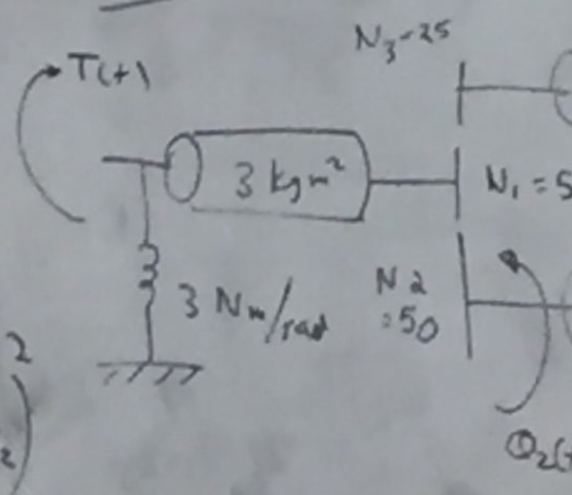 N3=25
T(t)
3 kgm²
N1 = 5
3 Nm/rad
N2
=50
2
2
θ2(t